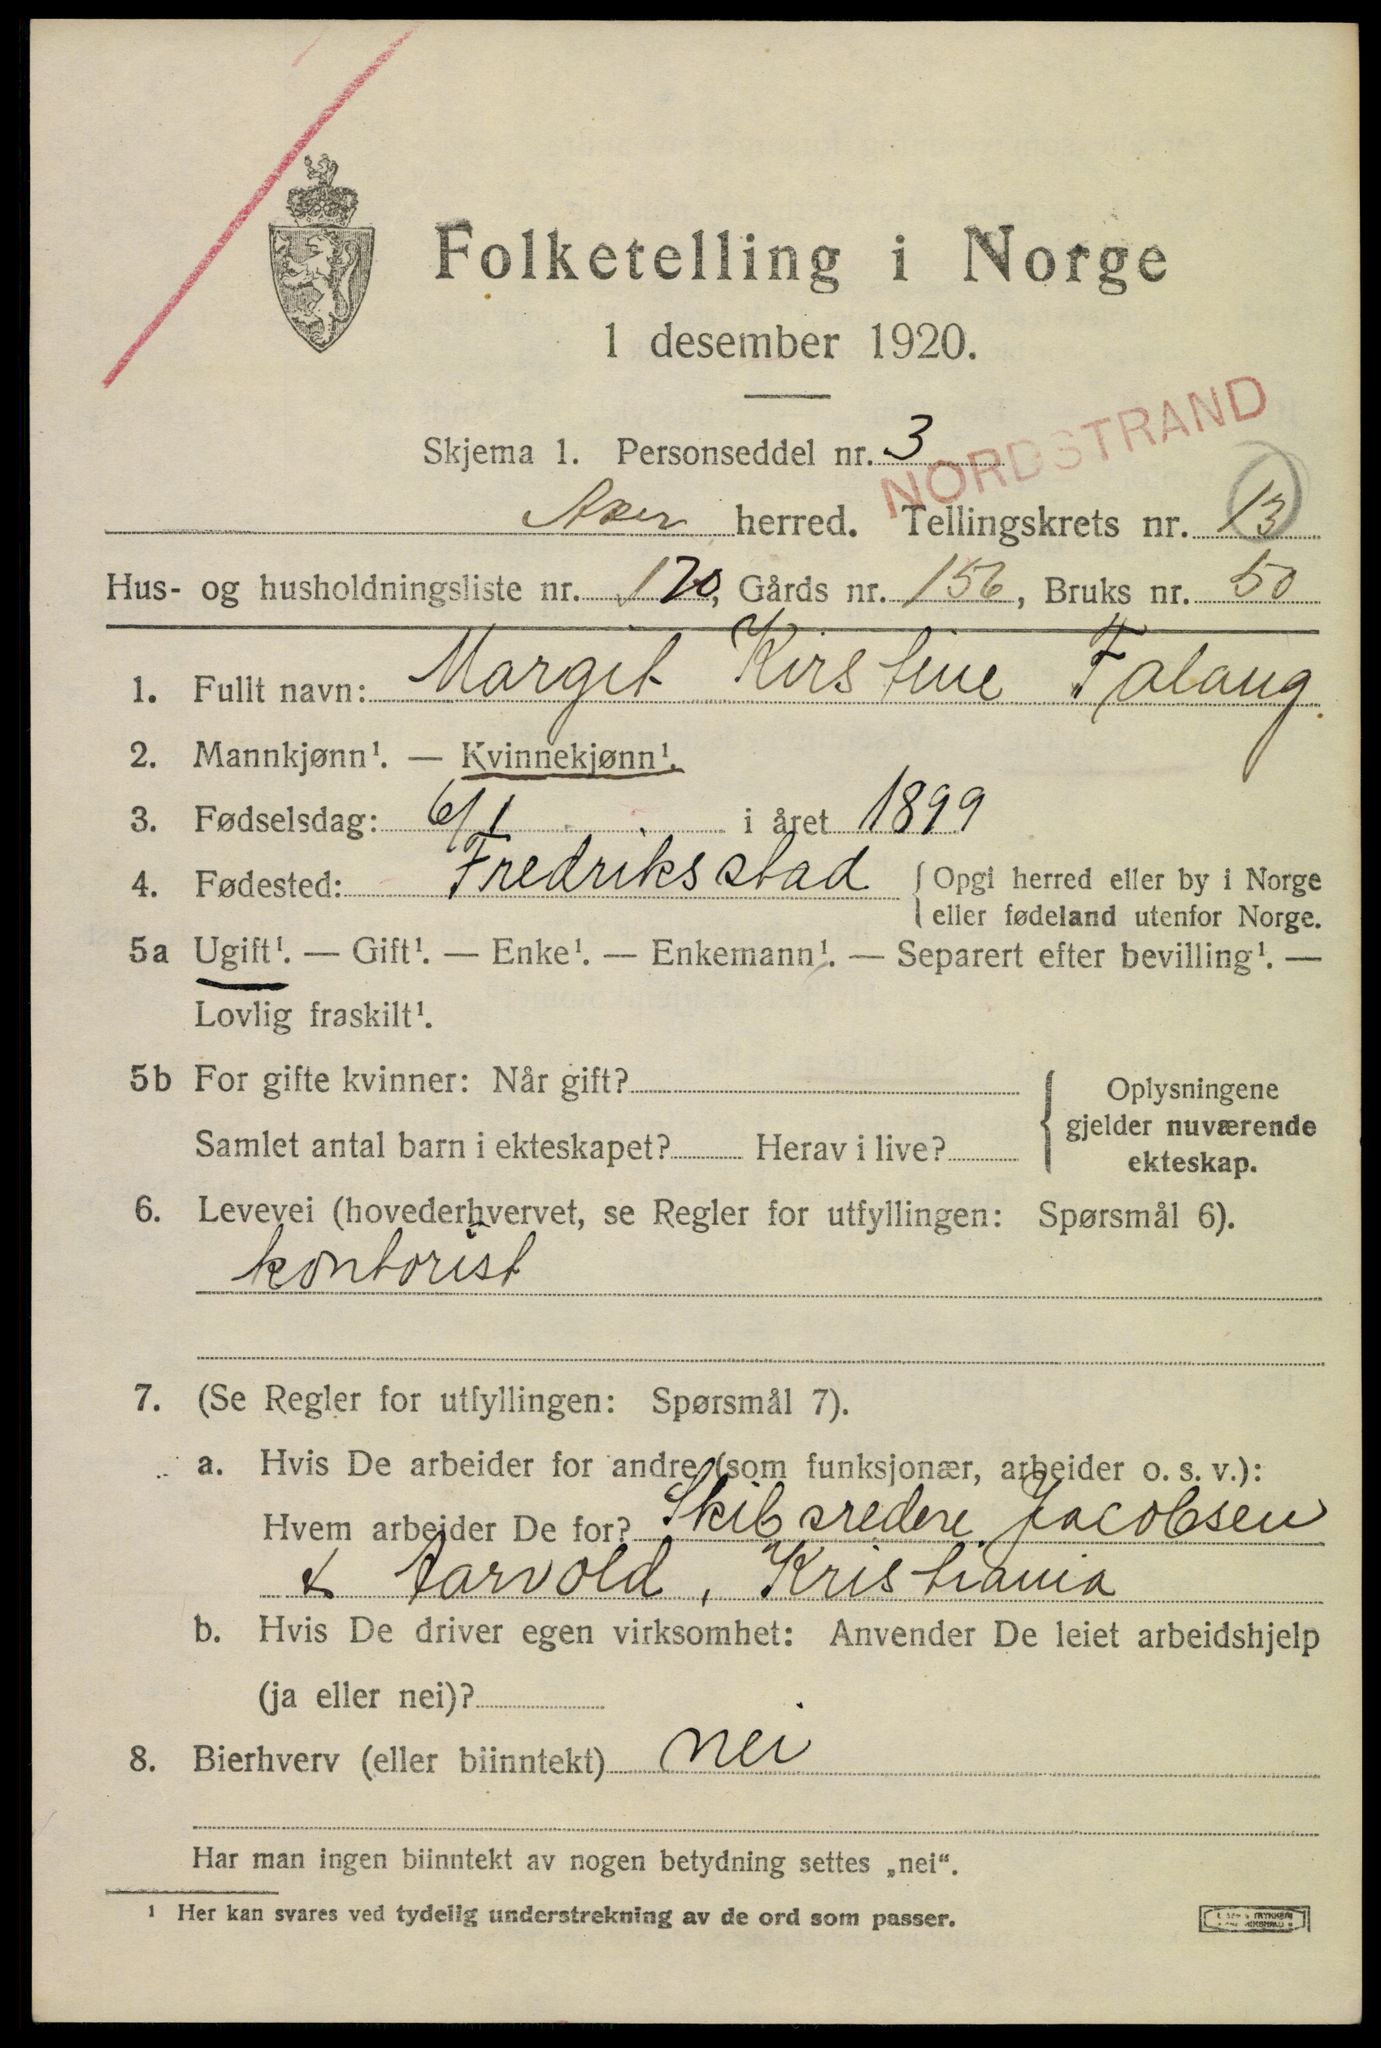 Folketelling i Norge
1 desember 1920.
NORDSTRAND
Skjema 1. Personseddel nr. 3
Aker herred. Tellingskrets nr. 13
Hus- og husholdningsliste nr. 170, Gårds nr. 156, Bruks nr. 50
1. Fullt navn: Margit Kirstine Falang
2. Mannkjønn¹. — Kvinnekjønn¹.
3. Fødselsdag: 6/1 i året 1899
4. Fødested: Fredriksstad { Opgi herred eller by i Norge
eller fødeland utenfor Norge.
5a Ugift¹. — Gift¹. — Enke¹. — Enkemann¹. — Separert efter bevilling¹. —
Lovlig fraskilt¹.
5b For gifte kvinner: Når gift?
Samlet antal barn i ekteskapet? Herav i live?
{ Oplysningene
gjelder nuværende
ekteskap.
6. Levevei (hovederhvervet, se Regler for utfyllingen: Spørsmål 6).
kontorist
7. (Se Regler for utfyllingen: Spørsmål 7).
a. Hvis De arbeider for andre (som funksjonær, arbeider o. s. v.):
Hvem arbeider De for? Skibsredere Jacobsen
& Aarvold, Kristiania
b. Hvis De driver egen virksomhet: Anvender De leiet arbeidshjelp
(ja eller nei)?
8. Bierhverv (eller biinntekt) nei
Har man ingen biinntekt av nogen betydning settes „nei“.
¹ Her kan svares ved tydelig understrekning av de ord som passer.